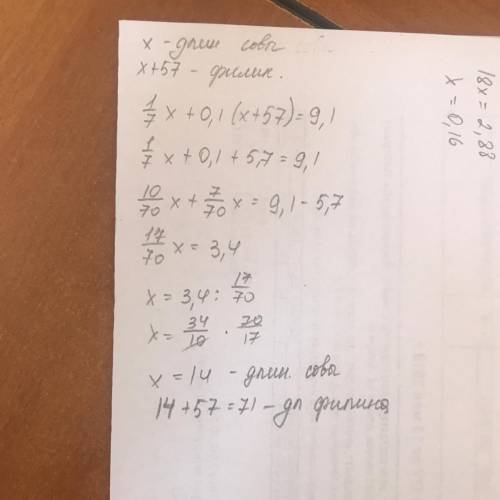 x - длин совы
x+57 - филин.
1/7 x + 0,1 (x+57) = 9,1
1/7 x + 0,1 + 5,7 = 9,1
10/70 x + 7/70 x = 9,1 - 5,7
17/70 x = 3,4
x = 3,4 : 17/70
x = 34/10 · 70/17
x = 14 - длин. совы
14 + 57 = 71 - дл филина
18x = 2,88
x = 0,16